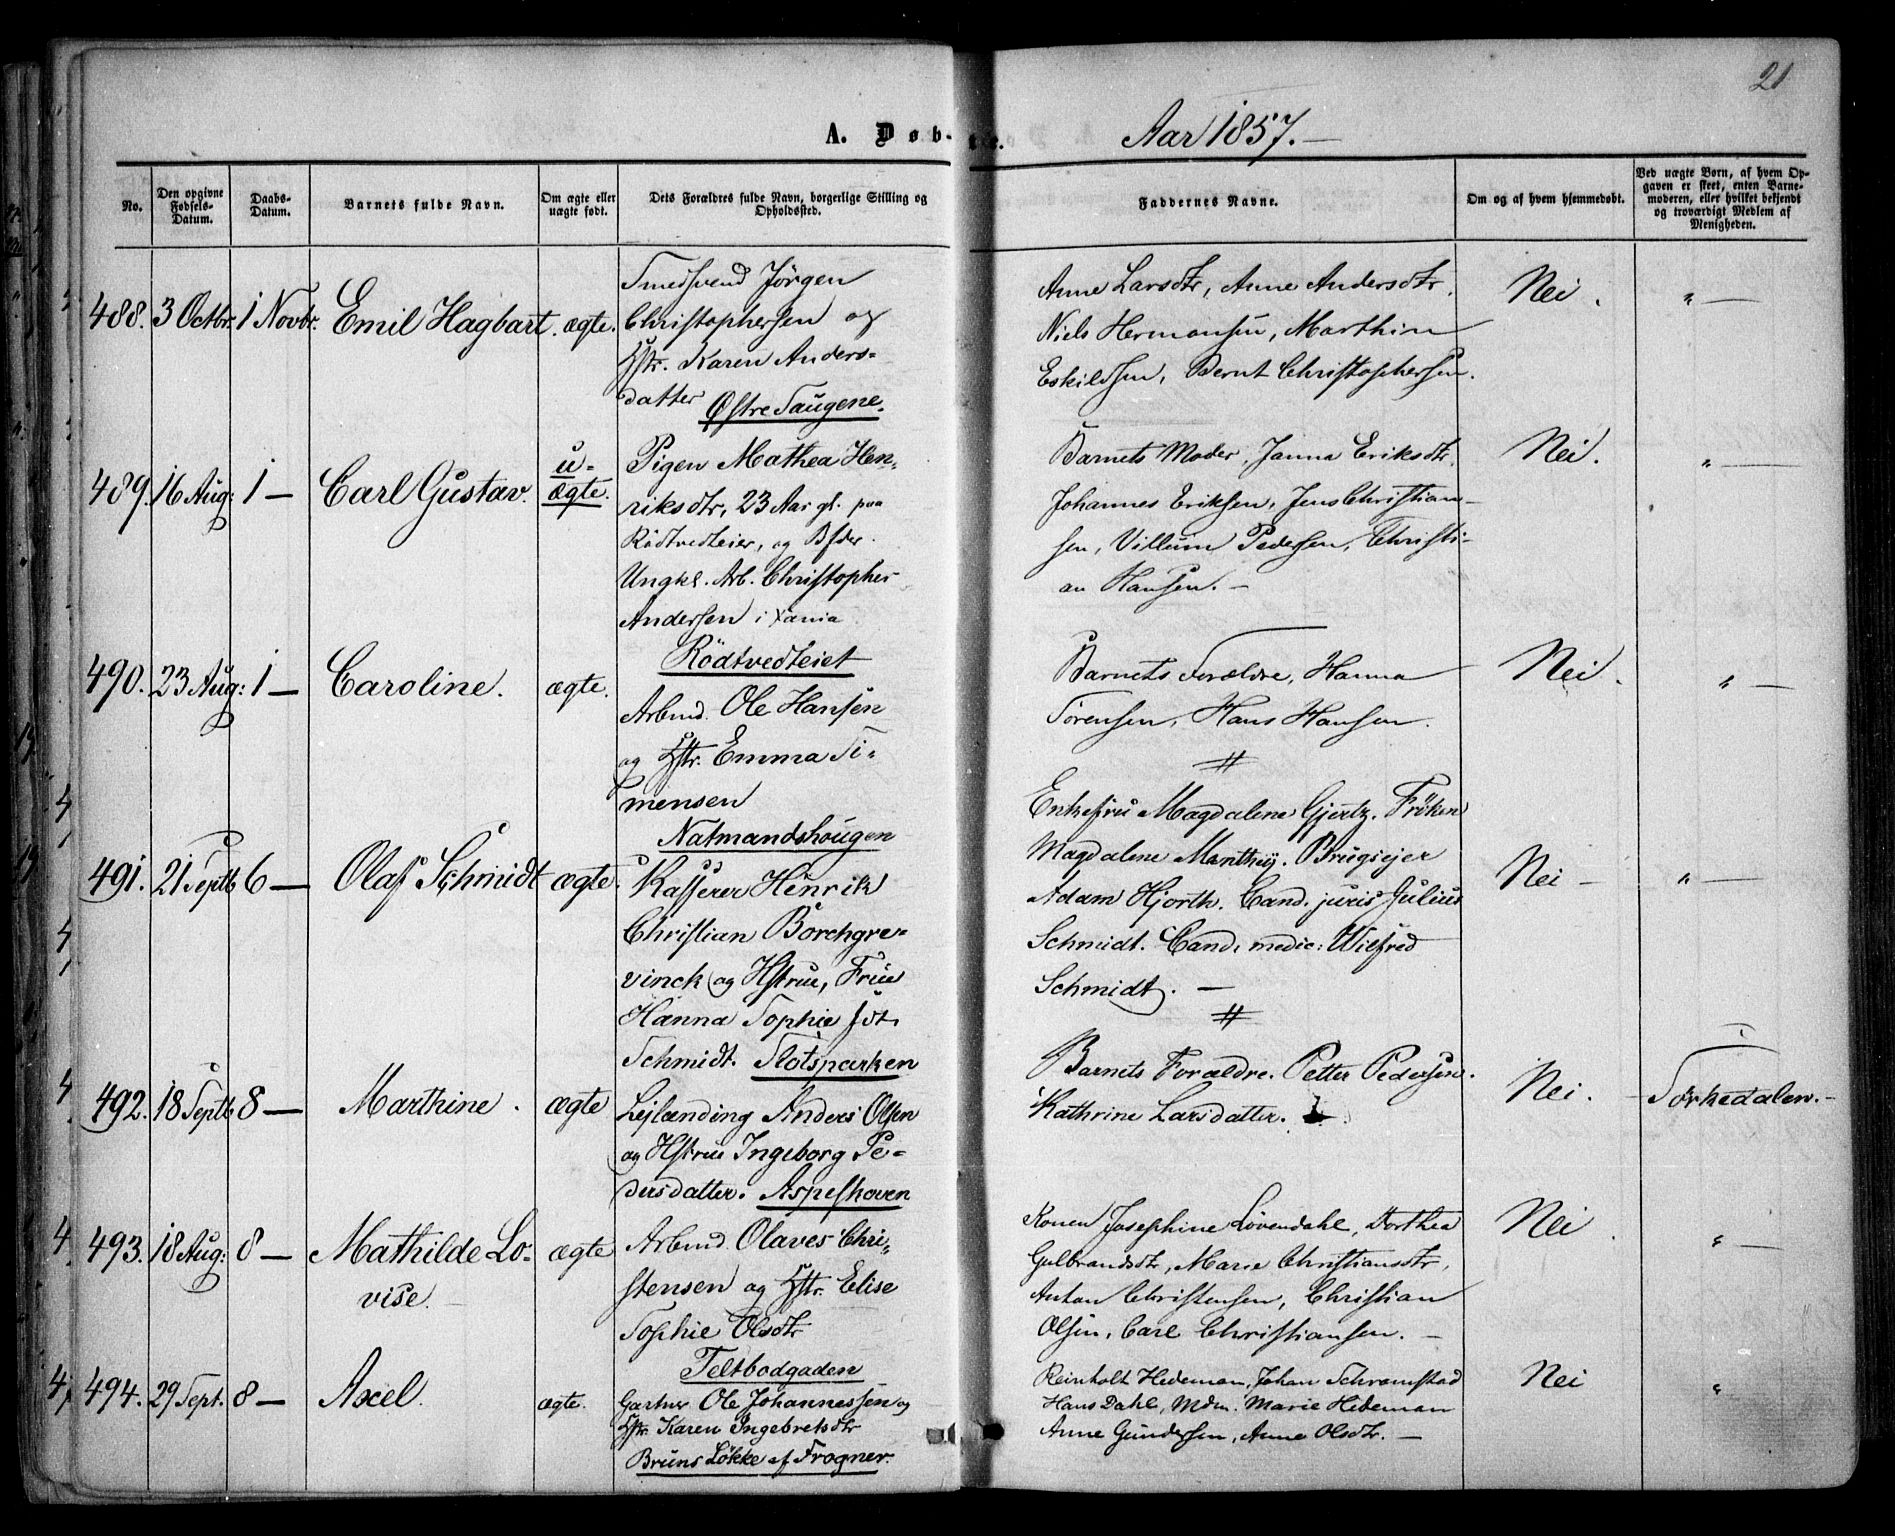 21
A. Døb-
te.
Aar 1857.—
No.
Den opgivne Fødsels-Datum.
Daabs-Datum.
Barnets fulde Navn.
Om ægte eller uægte født.
Dets Forældres fulde Navn, borgerlige Stilling og Opholdssted.
Faddernes Navne.
Om og af hvem hjemmedøbt.
Ved uægte Børn, af hvem Opgaven er skeet, enten Barnemoderen, eller hvilket bekjendt og troværdigt Medlem af Menigheden.
488. 3 Octbr. 1 Novbr. Emil Hagbart. ægte.
Smedsvend Jörgen
Christophersen og
Hstr. Karen Anders-
datter Østre Saugene.
Anne Larsdtr, Anne Andersdtr.
Niels Hermansen, Marthin
Eskildsen, Bernt Christophersen.
Nei. "—
489. 16 Aug: 1 — Carl Gustav. u-
ægte.
Pigen Mathea Hen-
riksdtr, 23 Aar gl. paa
Rödtvedteier, og Bfder.
Ungkl. Arb. Christopher
Andersen i Xania
Rödtvedteiet
Barnets Moder, Janna Eriksdtr.
Johannes Eriksen, Jens Christian-
sen, Villum Pedersen, Christi-
an Hansen. —
Nei. "—
490. 23 Aug: 1 — Caroline. ægte.
Arbmd. Ole Hansen
og Hstr. Emma Si-
mensen
Natmandshougen
Barnets Forældre, Hanna
Sörensen, Hans Hansen.
Nei. "—
491. 21 Septb 6 — Olaf Schmidt ægte.
Kasserer Henrik
Christian Borchgre-
vinck og Hstrue, Frue
Hanna Sophie fdt.
Schmidt. Slotsparken
Enkefru Magdalene Gjertz. Fröken
Magdalene Manthey. Brugsejer
Adam Hjorth. Cand. juris Julius
Schmidt. Cand. medic: Wilfred
Schmidt. —
Nei - "—
492. 18 Septb 8 — Marthine. ægte
Lejlænding Anders Olsen
og Hstrue Ingeborg Pe-
dersdatter. Aspeskoven
Barnets Forældre. Petter Pedersen.
Kathrine Larsdatter.
Nei. i
Sörkedalen.-
493. 18 Aug: 8 — Mathilde Lo-
vise. — ægte
Arbmd. Olaves Chri-
stensen og Hstr. Elise
Sophie Olsdtr
Teltbodgaden
Konen Josephine Lövendahl, Dorthea
Gulbrandsdtr, Marie Christiansdtr,
Anton Christensen, Christian
Olsen, Carl Christiansen. —
Nei. "—
494. 29 Sept. 8 — Axel. ægte.
Gartner Ole Johannessen og
Hstr. Karen Ingebretsdtr
Bruns Løkke af Frogner.
Reinholt Hedeman, Johan Schramstad
Hans Dahl, Mdm. Marie Hedeman
Anne Gundersen, Anne Olsdtr. —
Nei "